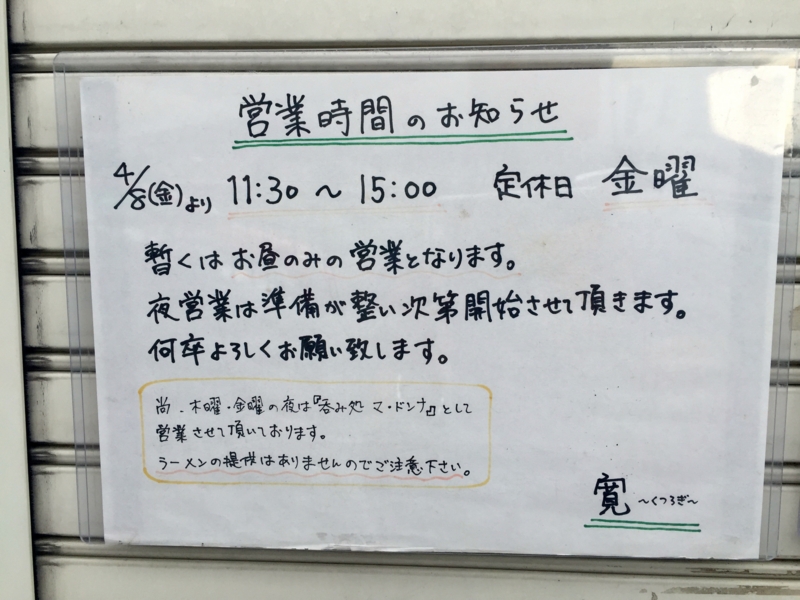 営業時間のお知らせ
4/8(金)より 11:30 ~ 15:00 定休日 金曜
暫くはお昼のみの営業となります。
夜営業は準備が整い次第開始させて頂きます。
何卒よろしくお願い致します。
尚、木曜・金曜の夜は『呑み処 マ・ドンナ』として
営業させて頂いております。
ラーメンの提供はありませんのでご注意下さい。
寛 ~くつろぎ~